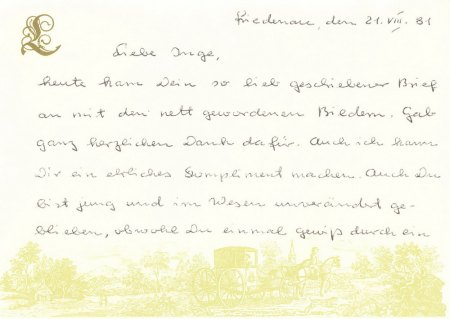 L
Friedenau, den 21. VIII. 81
Liebe Inge,
heute kam Dein so lieb geschriebener Brief
an mit den nett gewordenen Bildern. Hab
ganz herzlichen Dank dafür. Auch ich kann
Dir ein ehrliches Kompliment machen. Auch Du
bist jung und im Wesen unverändert ge-
blieben, obwohl Du einmal gewiß durch ein